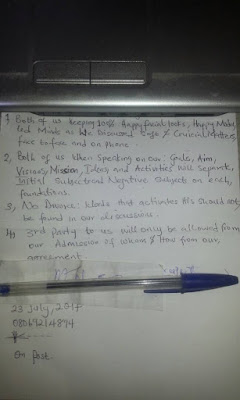 1, Both of us keeping 100% Happy facial looks, Happy Mode,
and Minds as we Discussed Safe & Crucial Matters
face to face and on phone.
2, Both of us when Speaking on our Goals, Aim,
Visions, Mission, Ideas, and Activities will Separate,
Initial Subjectional Negative Subjects on each,
foundations.
3, No Divorce Words And activities As should not
be found in our discussions.
4) 3rd Party to us will only be allowed from
our Admission of whom & How from our
agreement.
23 July, 2017
08069214894
On post.